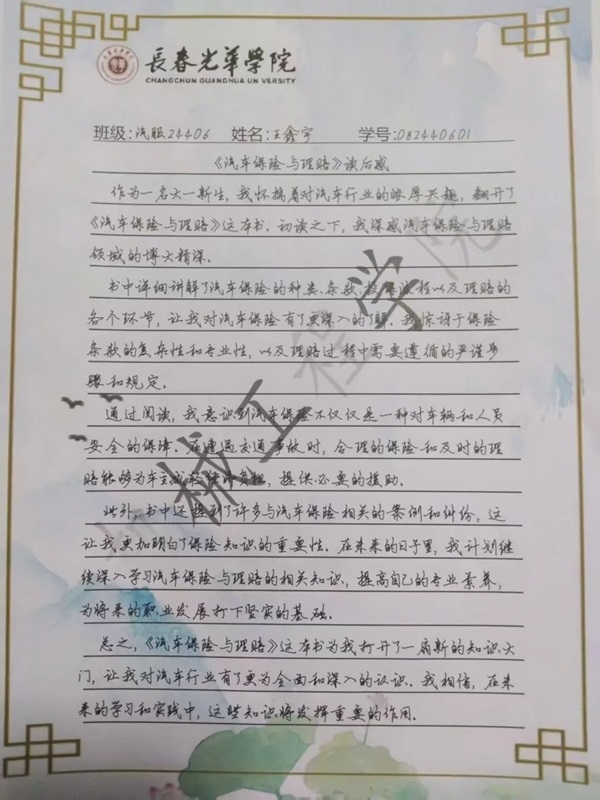 長春光華學院
CHANGCHUN GUANGHUA UN VERSITY
班级:汽服24406 姓名:王鑫宇 学号:082440601
《汽车保险与理赔》读后感
作为一名大一新生，我怀揣着对汽车行业的浓厚兴趣，翻开了
《汽车保险与理赔》这本书。初读之下，我深感汽车保险与理赔
领域的博大精深。
书中详细讲解了汽车保险的种类、条款、投保流程以及理赔的
各个环节，让我对汽车保险有了更深入的了解。我惊讶于保险
条款的复杂性和专业性，以及理赔过程中需要遵循的严谨步
骤和规定。
通过阅读，我意识到汽车保险不仅仅是一种对车辆和人员
安全的保障。在遭遇交通事故时，合理的保险和及时的理
赔能够为车主减轻经济负担，提供必要的援助。
此外，书中还提到了许多与汽车保险相关的案例和纠纷，这
让我更加明白了保险知识的重要性。在未来的日子里，我计划继
续深入学习汽车保险与理赔的相关知识，提高自己的专业素养，
为将来的职业发展打下坚实的基础。
总之，《汽车保险与理赔》这本书为我打开了一扇新的知识大
门，让我对汽车行业有了更为全面和深入的认识。我相信，在未
来的学习和实践中，这些知识将发挥重要的作用。
机械工程学院